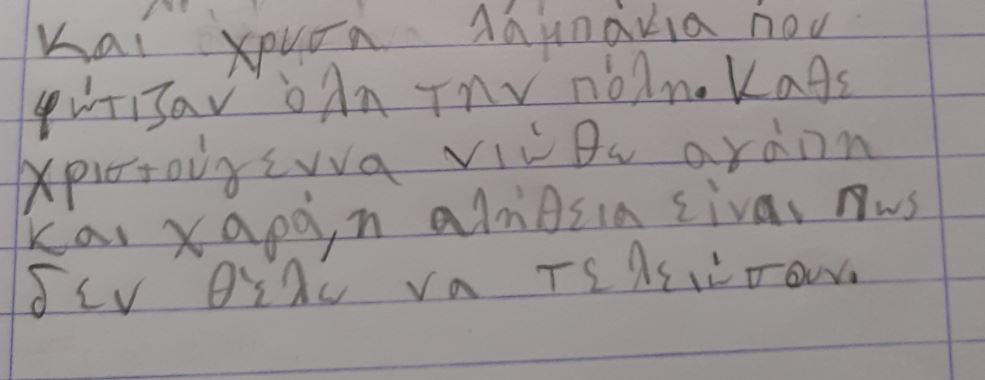 και χρυσα λαμπάκια που
φώτιζαν όλη την πόλη. Καθε
χριστούγεννα νιώθω αγάπη
και χαρά, η αλήθεια είναι πως
δεν θέλω να τελειώσουν.